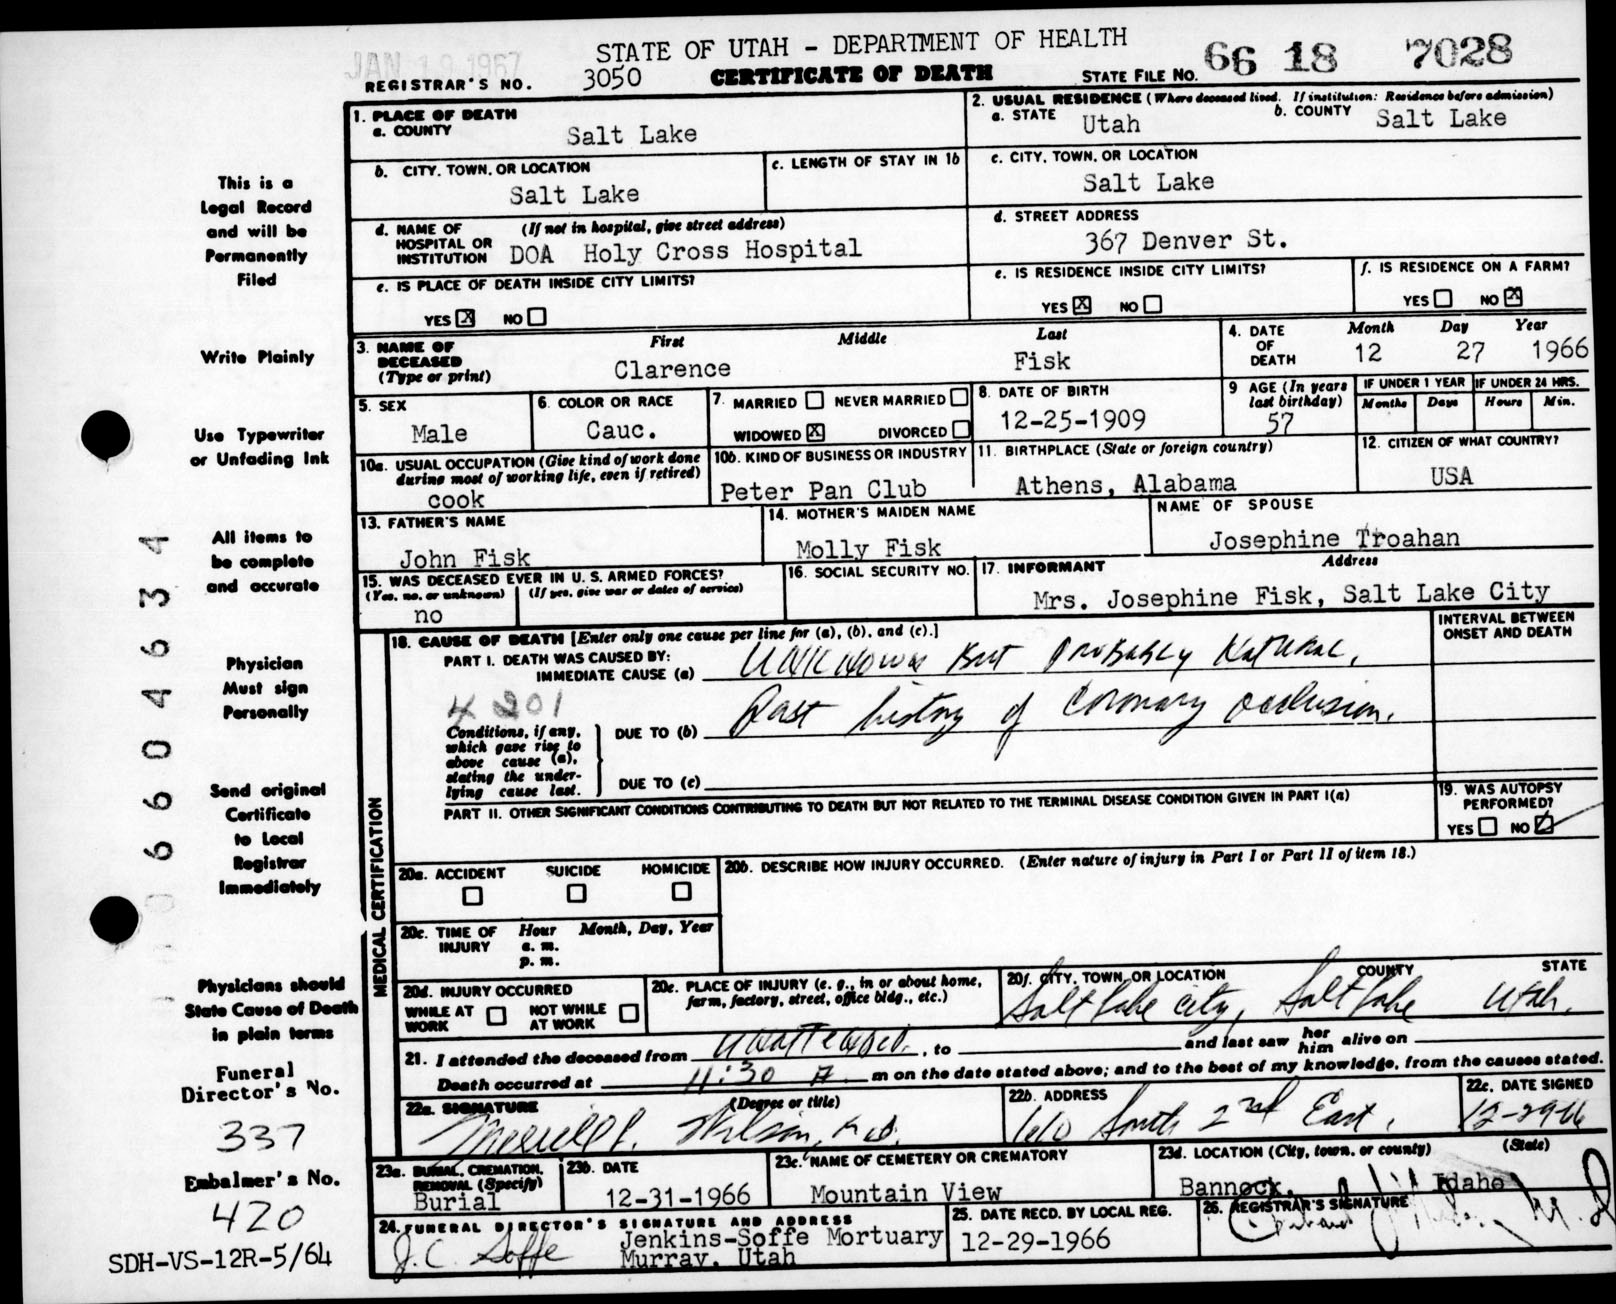 JAN 19 1967
STATE OF UTAH - DEPARTMENT OF HEALTH
REGISTRAR'S NO. 3050 CERTIFICATE OF DEATH STATE FILE NO. 66 18 7028
1. PLACE OF DEATH
a. COUNTY Salt Lake
2. USUAL RESIDENCE (Where deceased lived. If institution: Residence before admission)
a. STATE Utah b. COUNTY Salt Lake
b. CITY, TOWN, OR LOCATION Salt Lake
c. LENGTH OF STAY IN 1b
c. CITY, TOWN, OR LOCATION
Salt Lake
d. NAME OF HOSPITAL OR INSTITUTION (If not in hospital, give street address)
DOA Holy Cross Hospital
d. STREET ADDRESS
367 Denver St.
e. IS PLACE OF DEATH INSIDE CITY LIMITS?
YES X NO
e. IS RESIDENCE INSIDE CITY LIMITS?
YES X NO
f. IS RESIDENCE ON A FARM?
YES NO X
3. NAME OF DECEASED (Type or print)
First Middle Last
Clarence Fisk
4. DATE OF DEATH
Month Day Year
12 27 1966
5. SEX
Male
6. COLOR OR RACE
Cauc.
7. MARRIED NEVER MARRIED
WIDOWED X DIVORCED
8. DATE OF BIRTH
12-25-1909
9 AGE (In years last birthday)
57
IF UNDER 1 YEAR IF UNDER 24 HRS.
Months Days Hours Min.
10a. USUAL OCCUPATION (Give kind of work done during most of working life, even if retired)
cook
10b. KIND OF BUSINESS OR INDUSTRY
Peter Pan Club
11. BIRTHPLACE (State or foreign country)
Athens, Alabama
12. CITIZEN OF WHAT COUNTRY?
USA
13. FATHER'S NAME
John Fisk
14. MOTHER'S MAIDEN NAME
Molly Fisk
NAME OF SPOUSE
Josephine Troahan
15. WAS DECEASED EVER IN U. S. ARMED FORCES?
(Yes, no, or unknown) (If yes, give war or dates of service)
no
16. SOCIAL SECURITY NO.
17. INFORMANT Address
Mrs. Josephine Fisk, Salt Lake City
MEDICAL CERTIFICATION
18. CAUSE OF DEATH [Enter only one cause per line for (a), (b), and (c).]
INTERVAL BETWEEN ONSET AND DEATH
PART I. DEATH WAS CAUSED BY:
IMMEDIATE CAUSE (a) Unknown But Probably Natural.
4201
Conditions, if any, which gave rise to above cause (a), stating the underlying cause last.
DUE TO (b) Past history of Coronary occlusion.
DUE TO (c)
PART II. OTHER SIGNIFICANT CONDITIONS CONTRIBUTING TO DEATH BUT NOT RELATED TO THE TERMINAL DISEASE CONDITION GIVEN IN PART I(a)
19. WAS AUTOPSY PERFORMED?
YES NO
20a. ACCIDENT SUICIDE HOMICIDE
20b. DESCRIBE HOW INJURY OCCURRED. (Enter nature of injury in Part I or Part II of item 18.)
20c. TIME OF INJURY Hour Month, Day, Year
a. m.
p. m.
20d. INJURY OCCURRED
WHILE AT WORK NOT WHILE AT WORK
20e. PLACE OF INJURY (e. g., in or about home, farm, factory, street, office bldg., etc.)
20f. CITY, TOWN, OR LOCATION COUNTY STATE
Salt Lake City, Salt Lake Utah.
21. I attended the deceased from Unattended. , to and last saw her him alive on
Death occurred at 11:30 A. m on the date stated above; and to the best of my knowledge, from the causes stated.
22a. SIGNATURE (Degree or title)
Merrill L. Wilson, M.D.
22b. ADDRESS
610 South 2nd East.
22c. DATE SIGNED
12-29-66
23a. BURIAL, CREMATION, REMOVAL (Specify)
Burial
23b. DATE
12-31-1966
23c. NAME OF CEMETERY OR CREMATORY
Mountain View
23d. LOCATION (City, town, or county) (State)
Bannock, Idaho
24. FUNERAL DIRECTOR'S SIGNATURE AND ADDRESS
J. C. Soffe Jenkins-Soffe Mortuary
Murray, Utah
25. DATE RECD. BY LOCAL REG.
12-29-1966
26. REGISTRAR'S SIGNATURE
M.D
This is a
Legal Record
and will be
Permanently
Filed
Write Plainly
Use Typewriter
or Unfading Ink
All items to
be complete
and accurate
Physician
Must sign
Personally
Send original
Certificate
to Local
Registrar
Immediately
Physicians should
State Cause of Death
in plain terms
Funeral
Director's No.
337
Embalmer's No.
420
SDH-VS-12R-5/64
6604634